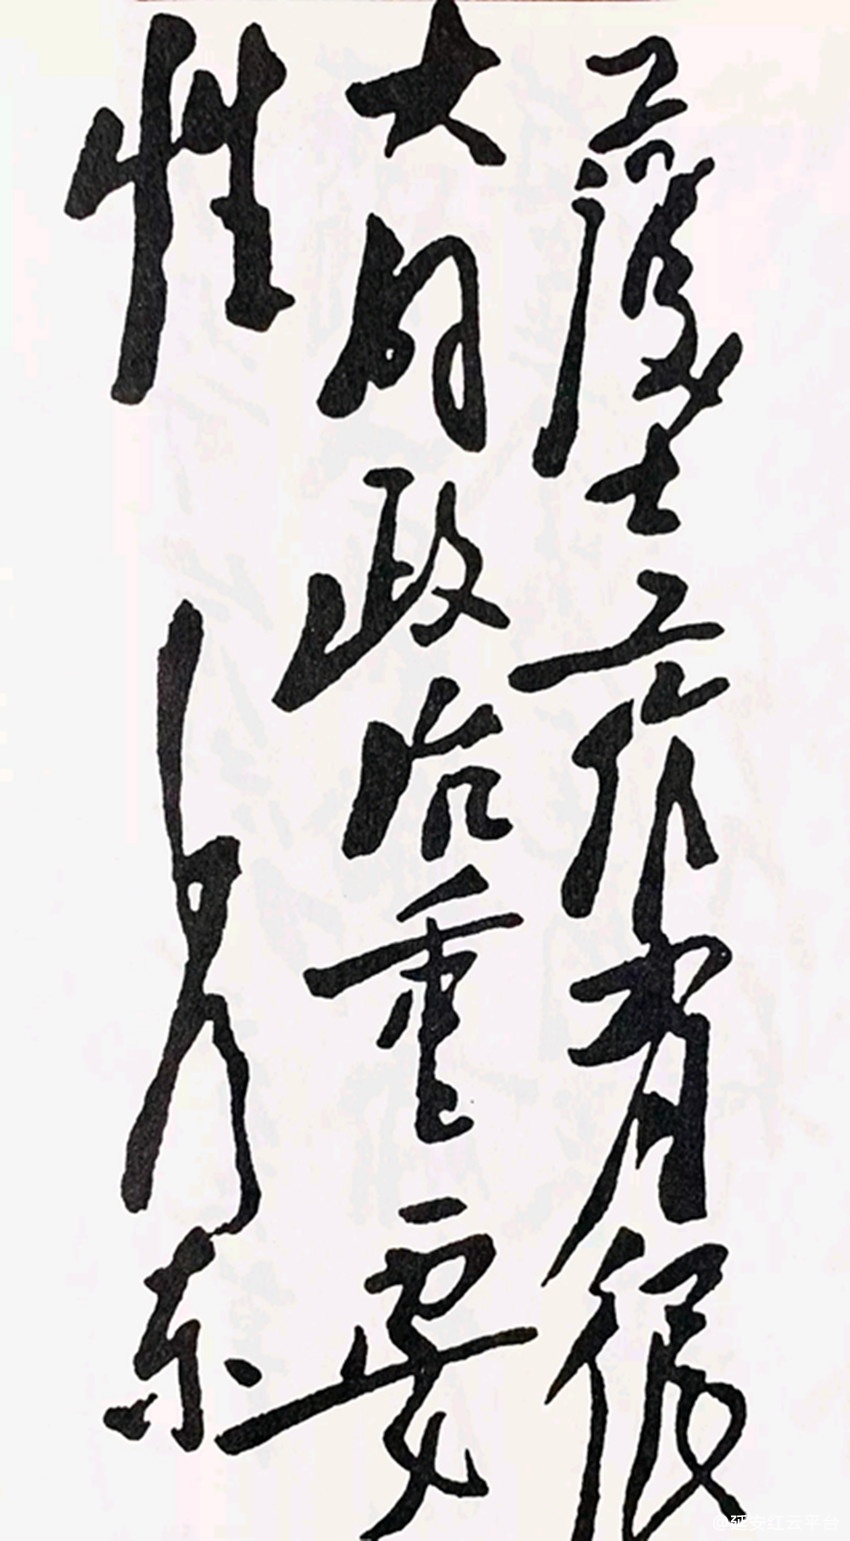 護士工作有很
大的政治重要
性
毛泽东
@延安红云平台